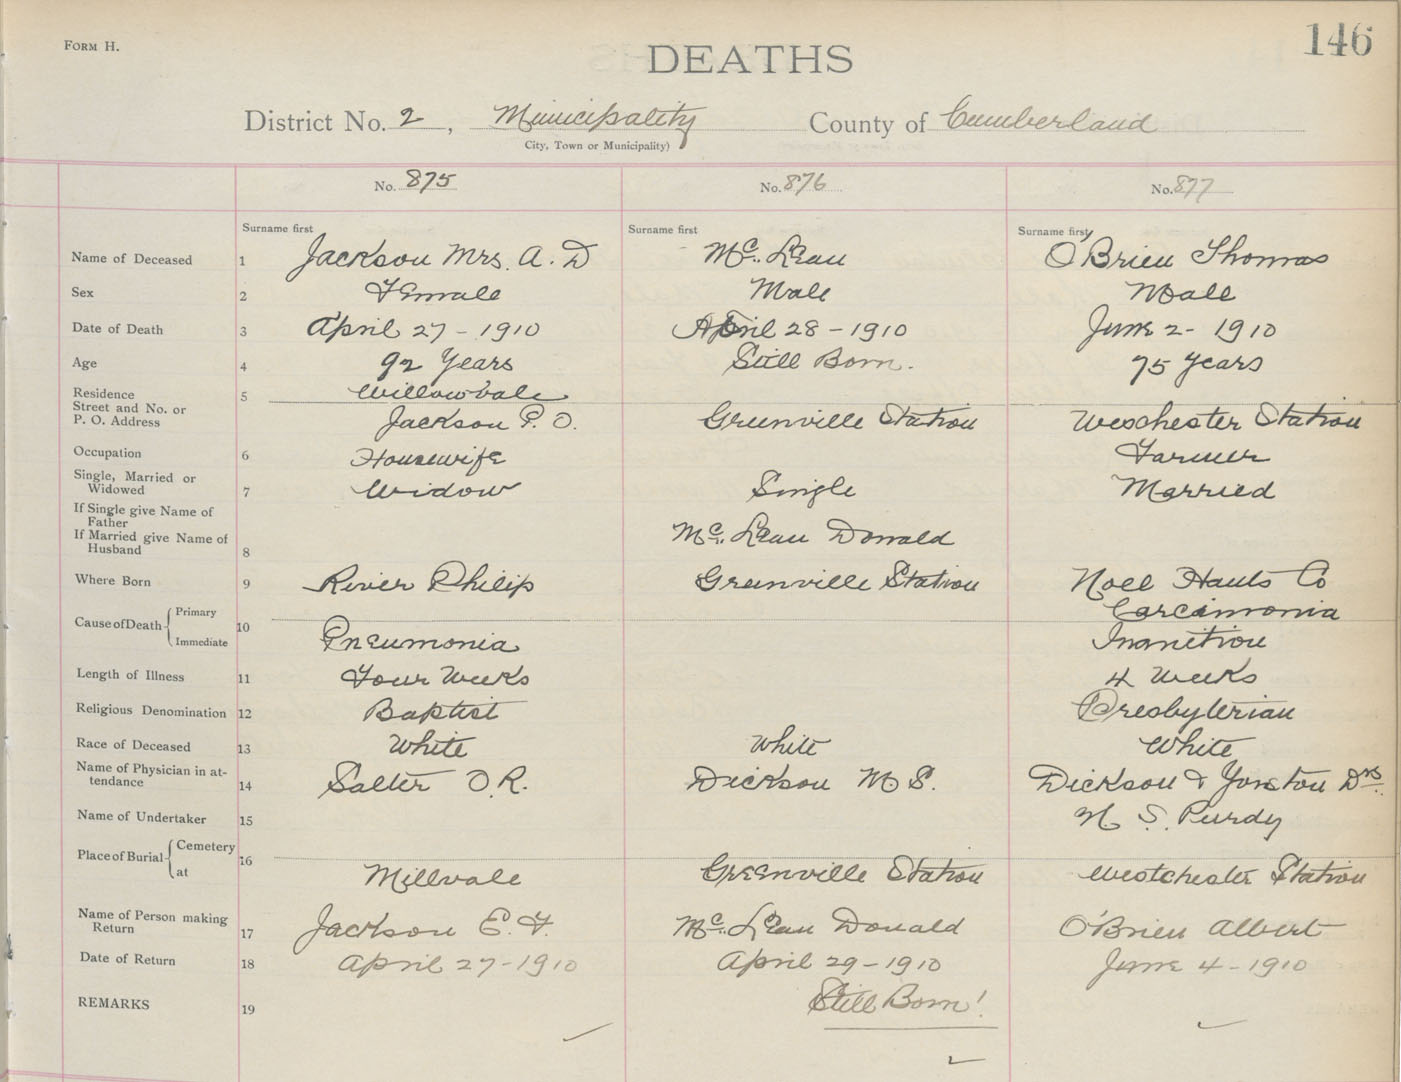 FORM H.
146
DEATHS
District No. 2, Municipality County of Cumberland
City, Town or Municipality)
No. 875 No. 876 No. 877
Surname first Surname first Surname first
Name of Deceased 1 Jackson Mrs. A. D Mc. Lean O'Brien Thomas
Sex 2 Female Male Male
Date of Death 3 April 27 - 1910 April 28 - 1910 June 2 - 1910
Age 4 92 Years Still Born. 75 years
Residence 5 Willowvale
Street and No. or
P. O. Address Jackson P. O. Greenville Station Weschester Station
Occupation 6 Housewife Farmer
Single, Married or
Widowed 7 Widow Single Married
If Single give Name of
Father
If Married give Name of Mc. Lean Donald
Husband 8
Where Born 9 River Philip Greenville Station Noel Hants Co
Cause of Death Primary 10 Carcinmonia
Immediate Pneumonia Inanition
Length of Illness 11 Four Weeks 4 Weeks
Religious Denomination 12 Baptist Presbyterian
Race of Deceased 13 White White White
Name of Physician in at-
tendance 14 Salter O. R. Dickson M S. Dickson & Yorston Drs.
Name of Undertaker 15 S. Purdy
Place of Burial Cemetery 16
at Millvale Greenville Station Westchester Station
Name of Person making
Return 17 Jackson E. F. Mc. Lean Donald O'Brien Albert
Date of Return 18 April 27 - 1910 April 29 - 1910 June 4 - 1910
REMARKS 19 Still Born!